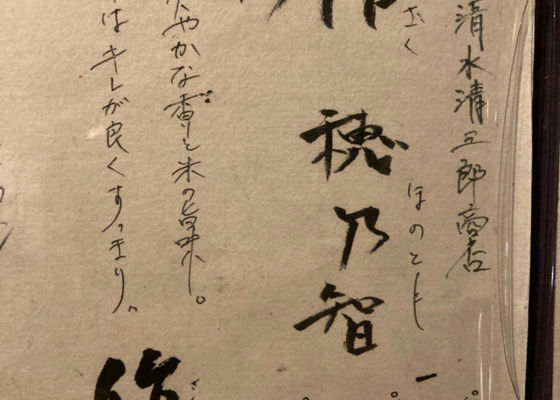 清水清三郎商店
ざく
ほのとも
穂乃智
やかな香りと米の旨味。
はキレが良くすっきり。
作